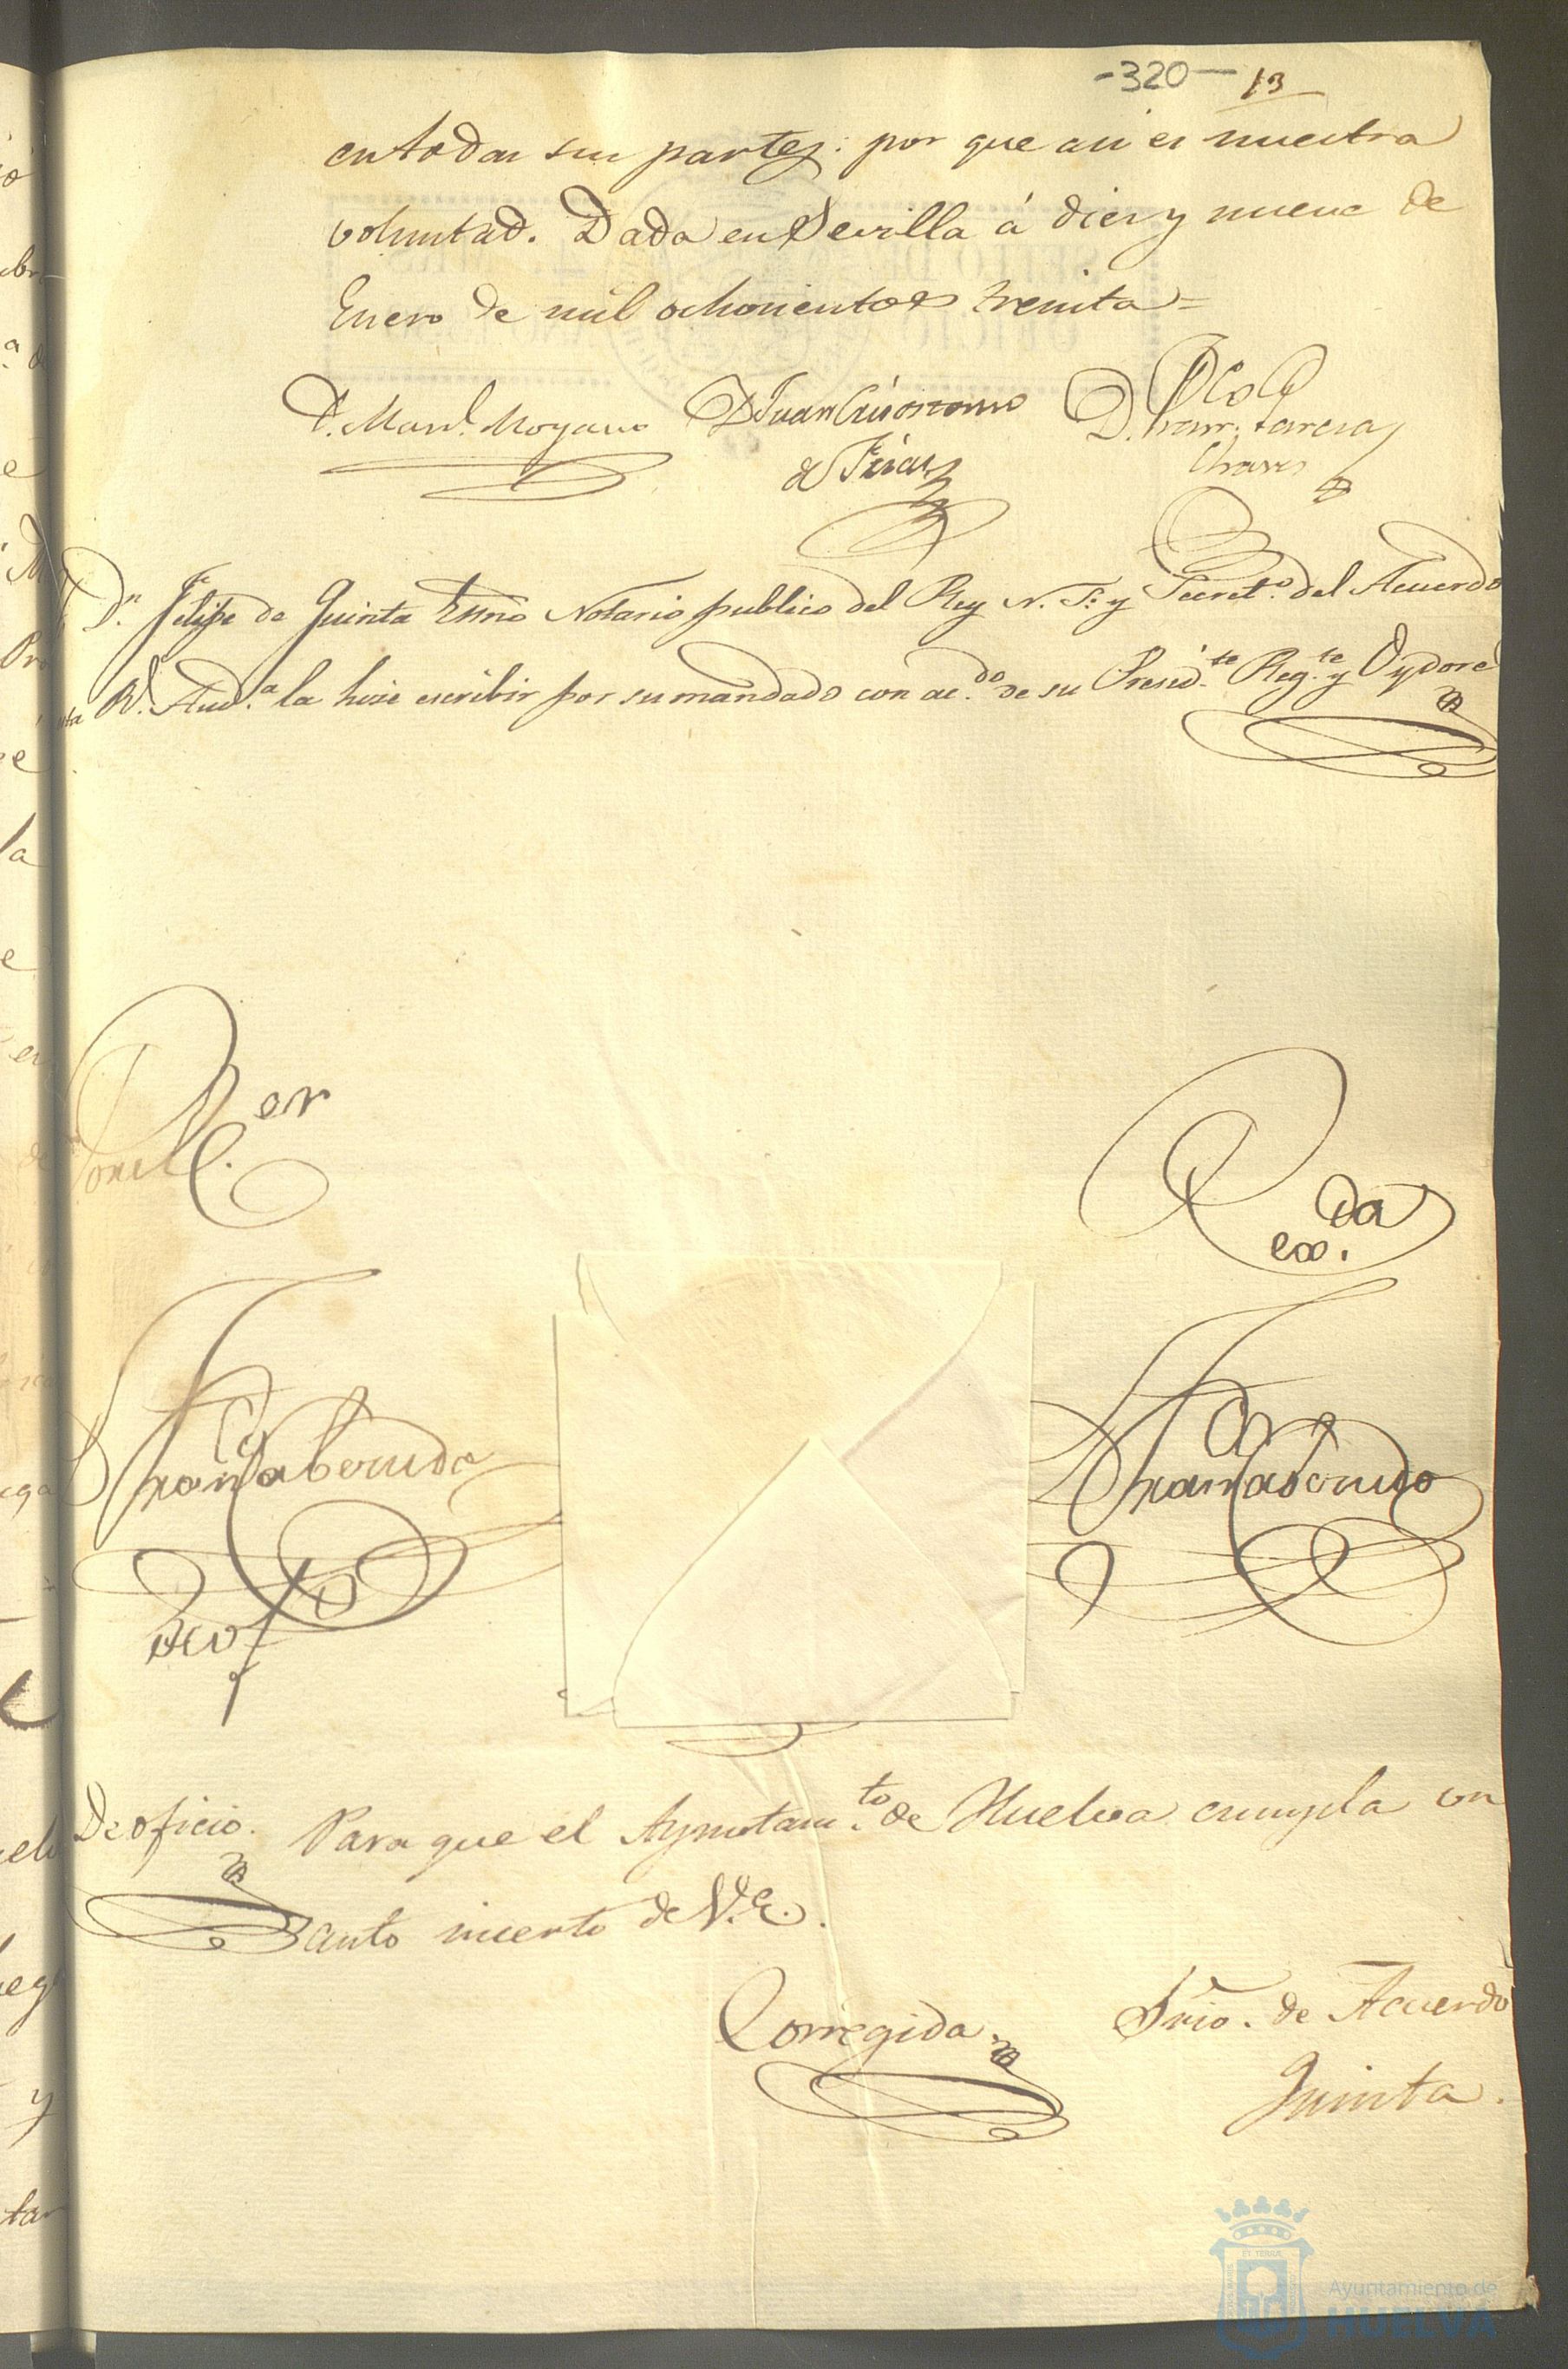 -320- 13
en todas sus partes: por que asi es nuestra
voluntad. Dada en Sevilla á diez y nueve de
Enero de mil ochocientos treinta=
D. Man.l Moyano
D. Juan Crisostomo
de Frias
D. Fran.co Garcia
Chaves
D.n Felipe de Quinta Essno Notario publico del Rey N. S.r y Secret.o del Acuerdo
R.l Aud.a la hice escribir por su mandado con ac.do de su Presid.te Reg.te y Oydores
Fran.co Taboruda
Fran.co Taboruda
De oficio. Para que el Ayuntam.to de Huelva cumpla con
auto inserto de V.E.
Corregida.
Srio. de Acuerdo
Quinta.
Ayuntamiento de
HUELVA